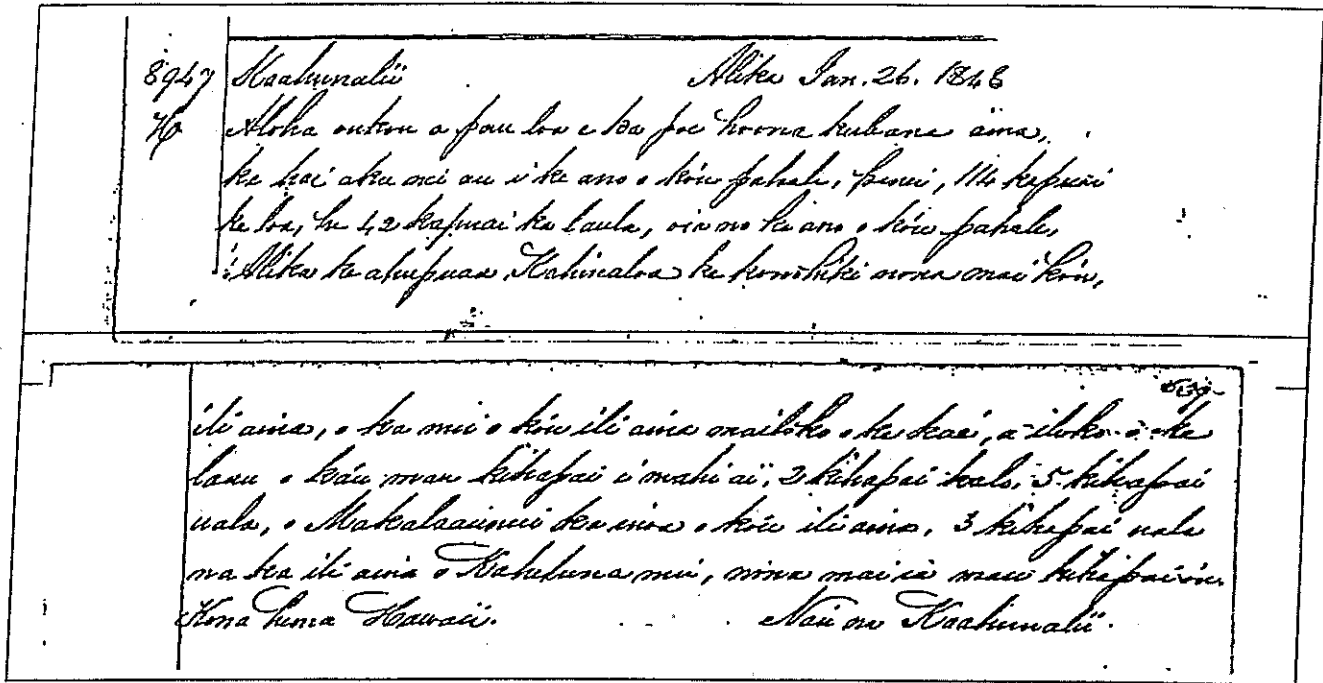 8947 Kaahunalii Alika Jan. 26. 1848
H Aloha oukou a pau loa e ka poe hoona kuleana aina,
ke hai aku nei au i ke ano o ko'u pahale, penei, 114 kapuai
ka loa, he 42 kapuai ka laula, oia no ke ano o ko'u pahale,
Alika ke ahupuaa Kahinaloa ke konohiki nona mai ko'u,
ili aina, o ka nui o ko'u ili aina mailoko o ke kai, a iloko o ka
laau o ka'u mau kihapai i mahi ai, 2 kihapai kalo, 5 kihapai
uala, o Makalaaunui ka inoa o ko'u ili aina, 3 kihapai uala
ma ka ili aina o nui, nona mai ia mau kihapai
Kona hema Hawaii. Na'u na Kaahunalii.